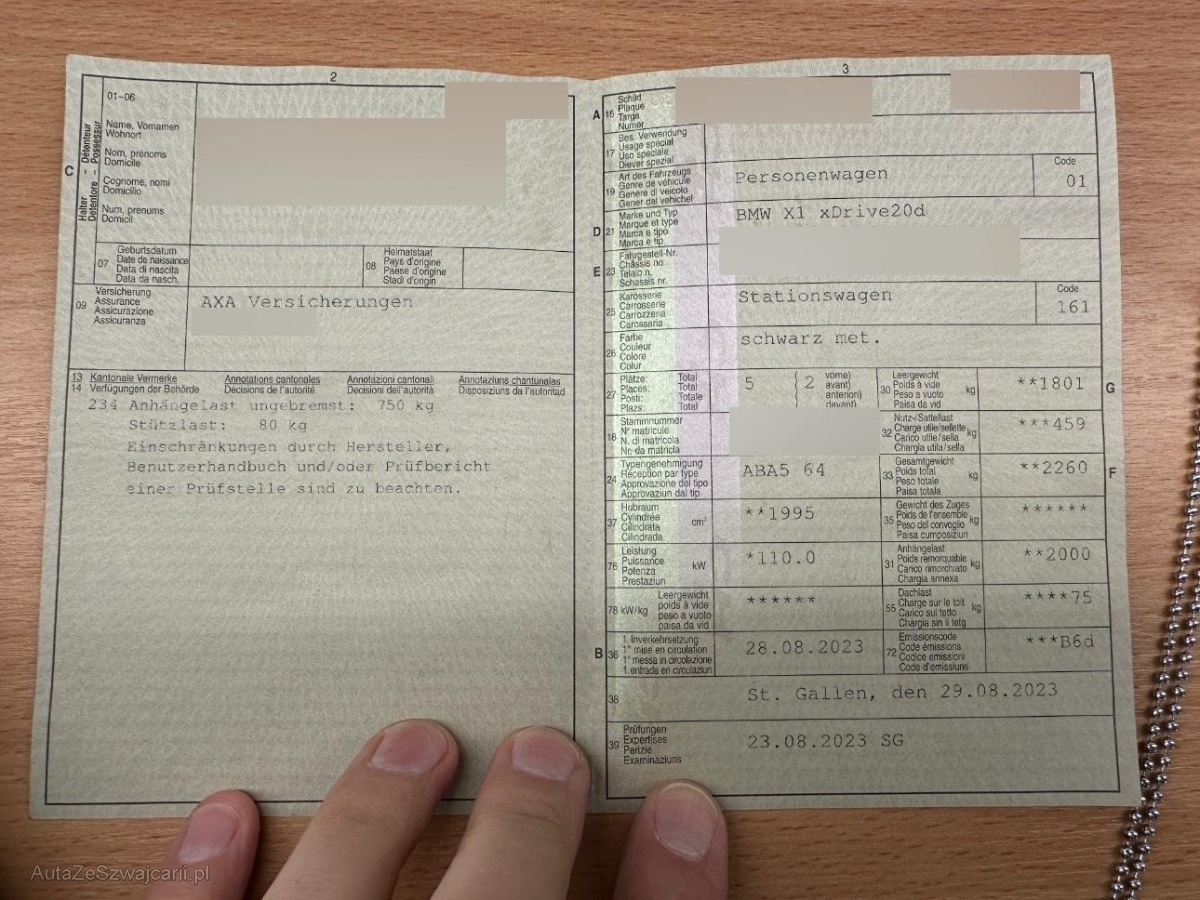 2
01–06
C
Halter – Détenteur
Detentore – Possessur
Name, Vornamen
Wohnort
Nom, prénoms
Domicile
Cognome, nomi
Domicilio
Num, prenums
Domicil
07
Geburtsdatum
Date de naissance
Data di nascita
Data da nasch.
08
Heimatstaat
Pays d'origine
Paese d'origine
Stadi d'origin
09
Versicherung
Assurance
Assicurazione
Assicuranza
AXA Versicherungen
13 Kantonale Vermerke Annotations cantonales Annotazioni cantonali Annotaziuns chantunalas
14 Verfügungen der Behörde Décisions de l'autorité Decisioni dell'autorità Disposiziuns da l'autoritad
234 Anhängelast ungebremst: 750 kg
Stützlast: 80 kg
Einschränkungen durch Hersteller,
Benutzerhandbuch und/oder Prüfbericht
einer Prüfstelle sind zu beachten.
3
A
Schild
Plaque
Targa
Numer
17
Bes. Verwendung
Usage spécial
Uso speciale
Diever spezial
19
Art des Fahrzeugs
Genre de véhicule
Genere di veicolo
Gener dal vehichel
Personenwagen
Code
01
D 21
Marke und Typ
Marque et type
Marca e tipo
Marca e tip
BMW X1 xDrive20d
E 23
Fahrgestell-Nr.
Châssis no
Telaio n.
Schassis nr.
25
Karosserie
Carrosserie
Carrozzeria
Carossaria
Stationswagen
Code
161
26
Farbe
Couleur
Colore
Colur
schwarz met.
27
Plätze: Total
Places: Total
Posti: Totale
Plazs: Total
5 ( 2
vorne)
avant)
anteriori)
davant)
30
Leergewicht
Poids à vide
Peso a vuoto
Paisa da vid
kg
**1801
G
18
Stammnummer
N° matricule
N. di matricola
Nr. da matricla
32
Nutz-/Sattellast
Charge utile/sellette
Carico utile/sella
Chargia utila/sella
kg
***459
24
Typengenehmigung
Réception par type
Approvazione del tipo
Approvaziun dal tip
ABA5 64
33
Gesamtgewicht
Poids total
Peso totale
Paisa totala
kg
**2260
F
37
Hubraum
Cylindrée
Cilindrata
Cilindrada
cm³
**1995
35
Gewicht des Zuges
Poids de l'ensemble
Peso del convoglio
Paisa cumposiziun
kg
******
76
Leistung
Puissance
Potenza
Prestaziun
kW
*110.0
31
Anhängelast
Poids remorquable
Carico rimorchiato
Chargia annexa
kg
**2000
78 kW/kg
Leergewicht
poids à vide
peso a vuoto
paisa da vid
******
55
Dachlast
Charge sur le toit
Carico sul tetto
Chargia sin il tetg
kg
****75
B 36
1. Inverkehrsetzung
1re mise en circulation
1a messa in circolazione
1. entrada en circulaziun
28.08.2023
72
Emissionscode
Code émissions
Codice emissioni
Code d'emissiuns
***B6d
38
St. Gallen, den 29.08.2023
39
Prüfungen
Expertises
Perizie
Examinaziuns
23.08.2023 SG
AutaZeSzwajcarii.pl